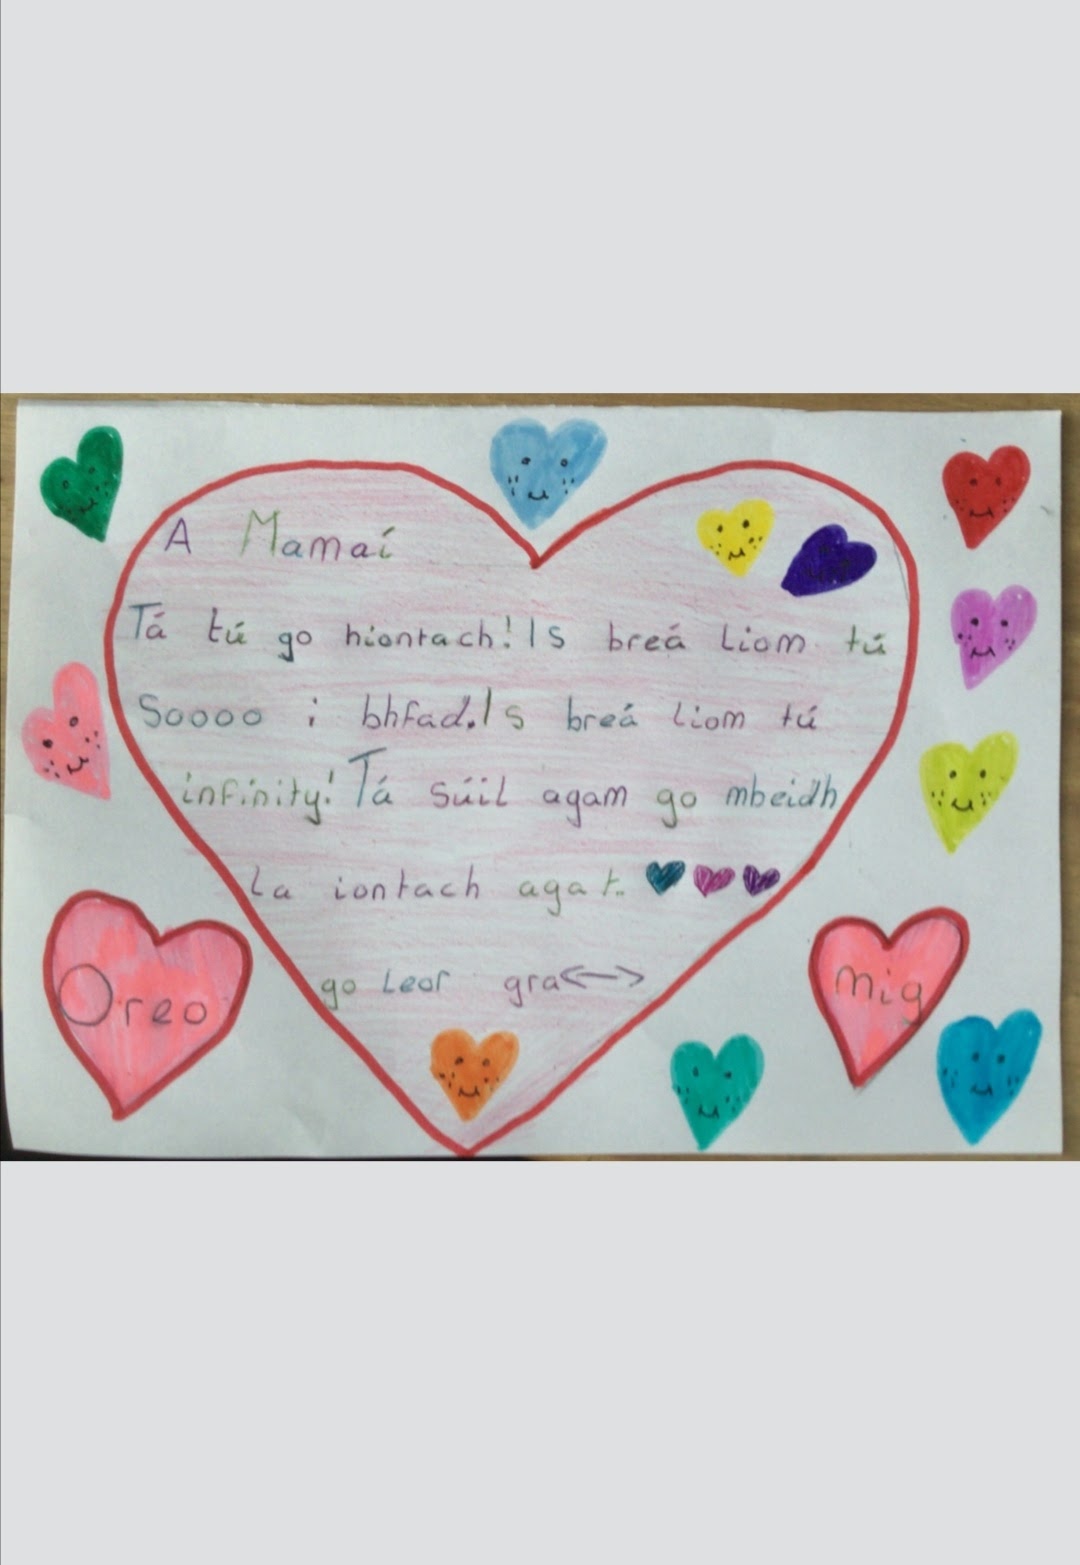 A Mamaí
Tá tú go hiontach! Is breá liom tú
Soooo i bhfad. Is breá liom tú
infinity! Tá súil agam go mbeidh
La iontach agat..
go leor gra
Oreo
Mig